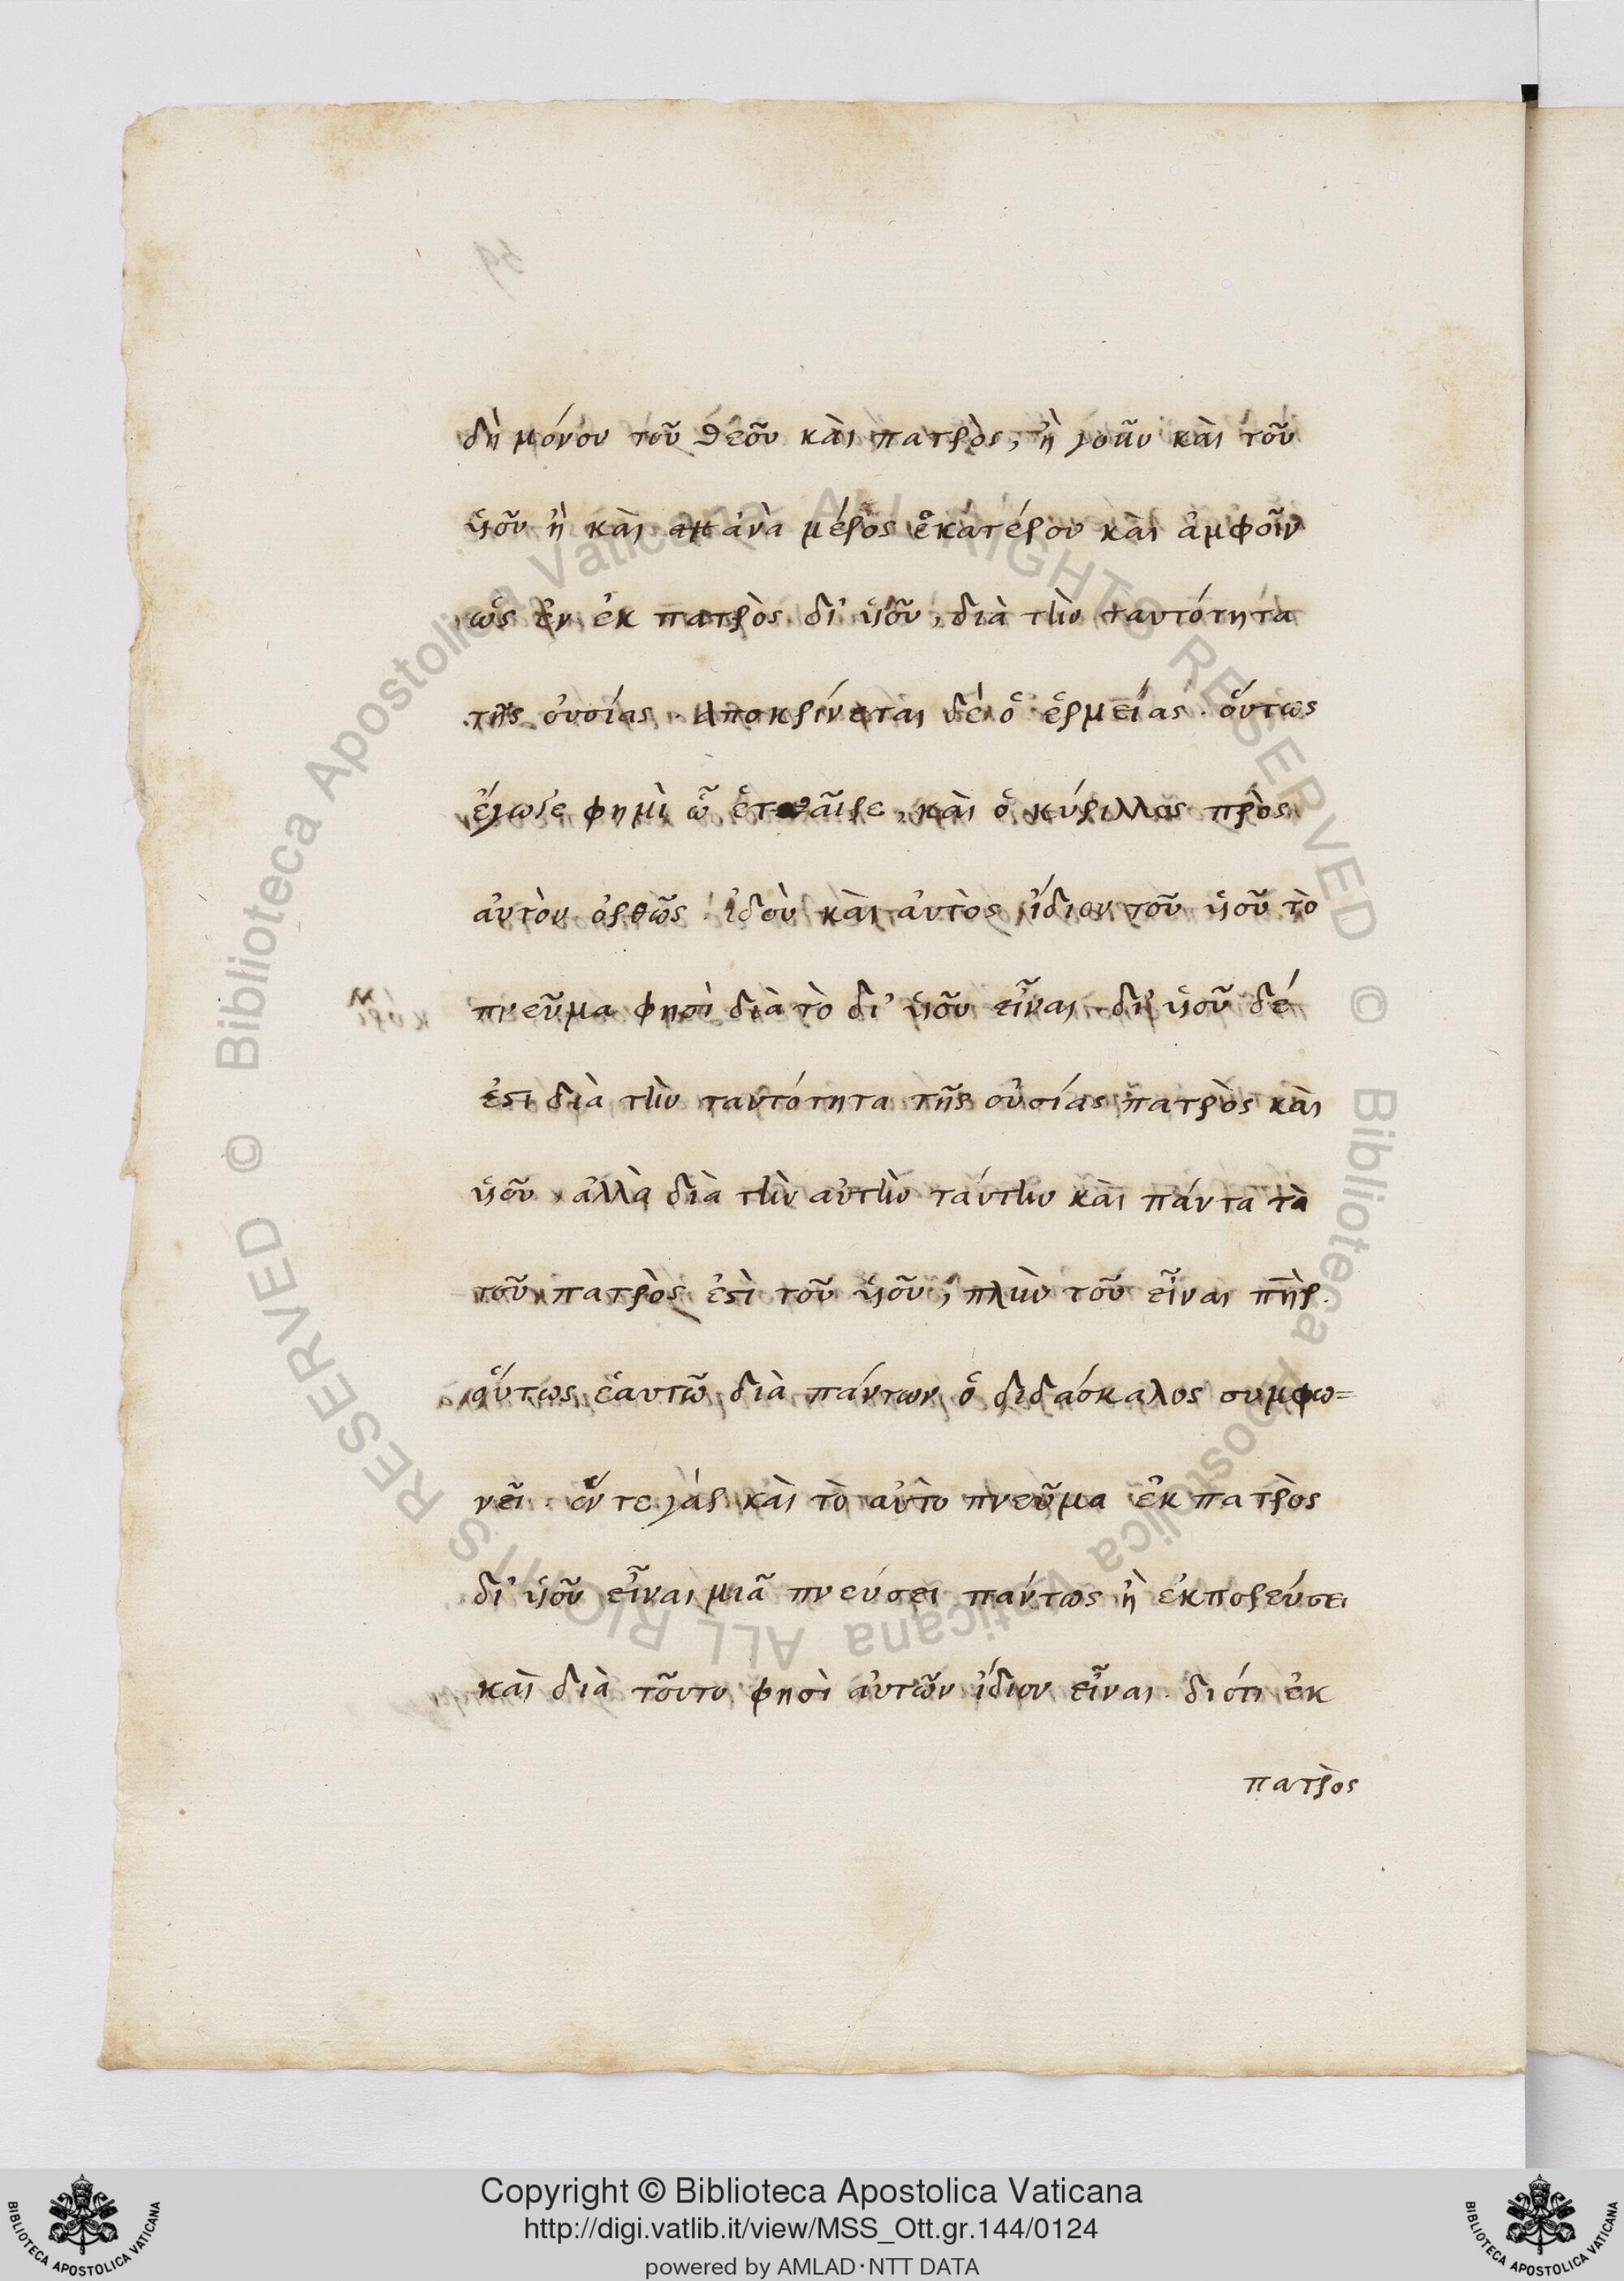 δὴ μόνου τοῦ θεοῦ καὶ πατρὸς, ἢ γοῦν καὶ τοῦ
ὑιοῦ ἢ καὶ ἀνὰ μέρος ἑκατέρου καὶ ἀμφοῖν
ὡς ἓν ἐκ πατρὸς δι' ὑιοῦ, διὰ τὴν ταυτότητα
τῆς οὐσίας. Αποκρίνεται δὲ ὁ ἑρμείας. οὕτως
ἔγωγε φημὶ ὦ ἑταῖρε, καὶ ὁ κύριλλος πρὸς
αὐτὸν ὀρθῶς. ἰδοὺ καὶ αὐτὸς ἴδιον τοῦ ὑιοῦ τὸ
πνεῦμα φησὶ διὰ τὸ δι' ὑιοῦ εἶναι. δι' ὑιοῦ δέ
ἐστι διὰ τὴν ταυτότητα τῆς οὐσίας πατρὸς καὶ
ὑιοῦ, ἀλλὰ διὰ τὴν αὐτὴν ταύτην καὶ πάντα τὰ
τοῦ πατρὸς ἐστὶ τοῦ ὑιοῦ, πλὴν τοῦ εἶναι πηρ.
οὕτως ἑαυτῷ διὰ πάντων ὁ διδάσκαλος συμφω=
νεῖ. ἕν τε γὰρ καὶ τὸ αὐτὸ πνεῦμα ἐκ πατρὸς
δι' ὑιοῦ εἶναι μιᾷ πνεύσει πάντως ἢ ἐκπορεύσει
καὶ διὰ τοῦτο φησὶ αὐτῶν ἴδιον εἶναι. διότι ἐκ
πατρὸς
Copyright © Biblioteca Apostolica Vaticana
http://digi.vatlib.it/view/MSS_Ott.gr.144/0124
powered by AMLAD·NTT DATA
© Biblioteca Apostolica Vaticana ALL RIGHTS RESERVED
© Biblioteca Apostolica Vaticana ALL RIGHTS RESERVED
BIBLIOTECA APOSTOLICA VATICANA
BIBLIOTECA APOSTOLICA VATICANA